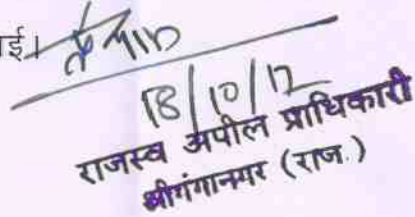 ाई।
18/10/12
राजस्व अपील प्राधिकारी
श्रीगंगानगर (राज.)